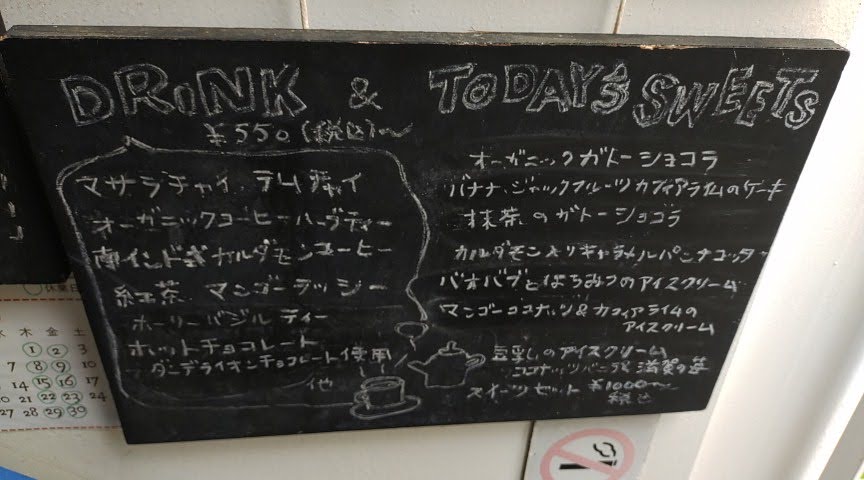 DRINK & TODAY'S SWEETS
¥550(税込)～
マサラチャイ、デリチャイ
オーガニックコーヒー ハーブティー
南インド式カルダモンコーヒー
紅茶、マンゴーラッシー
ホーリーバジルティー
ホットチョコレート
ダンデライオンチョコレート使用
他
オーガニックガトーショコラ
バナナ、ジャックフルーツカフィアライムのケーキ
抹茶のガトーショコラ
カルダモン入りキャラメルパンナコッタ
バオバブとはちみつのアイスクリーム
マンゴーココナッツ&カフィアライムの
アイスクリーム
豆乳のアイスクリーム
スイーツセット ¥1000～
税込
休業日
水 木 金 土
1 2
7 8 9
14 15 16
22 23 24
27 28 29 30